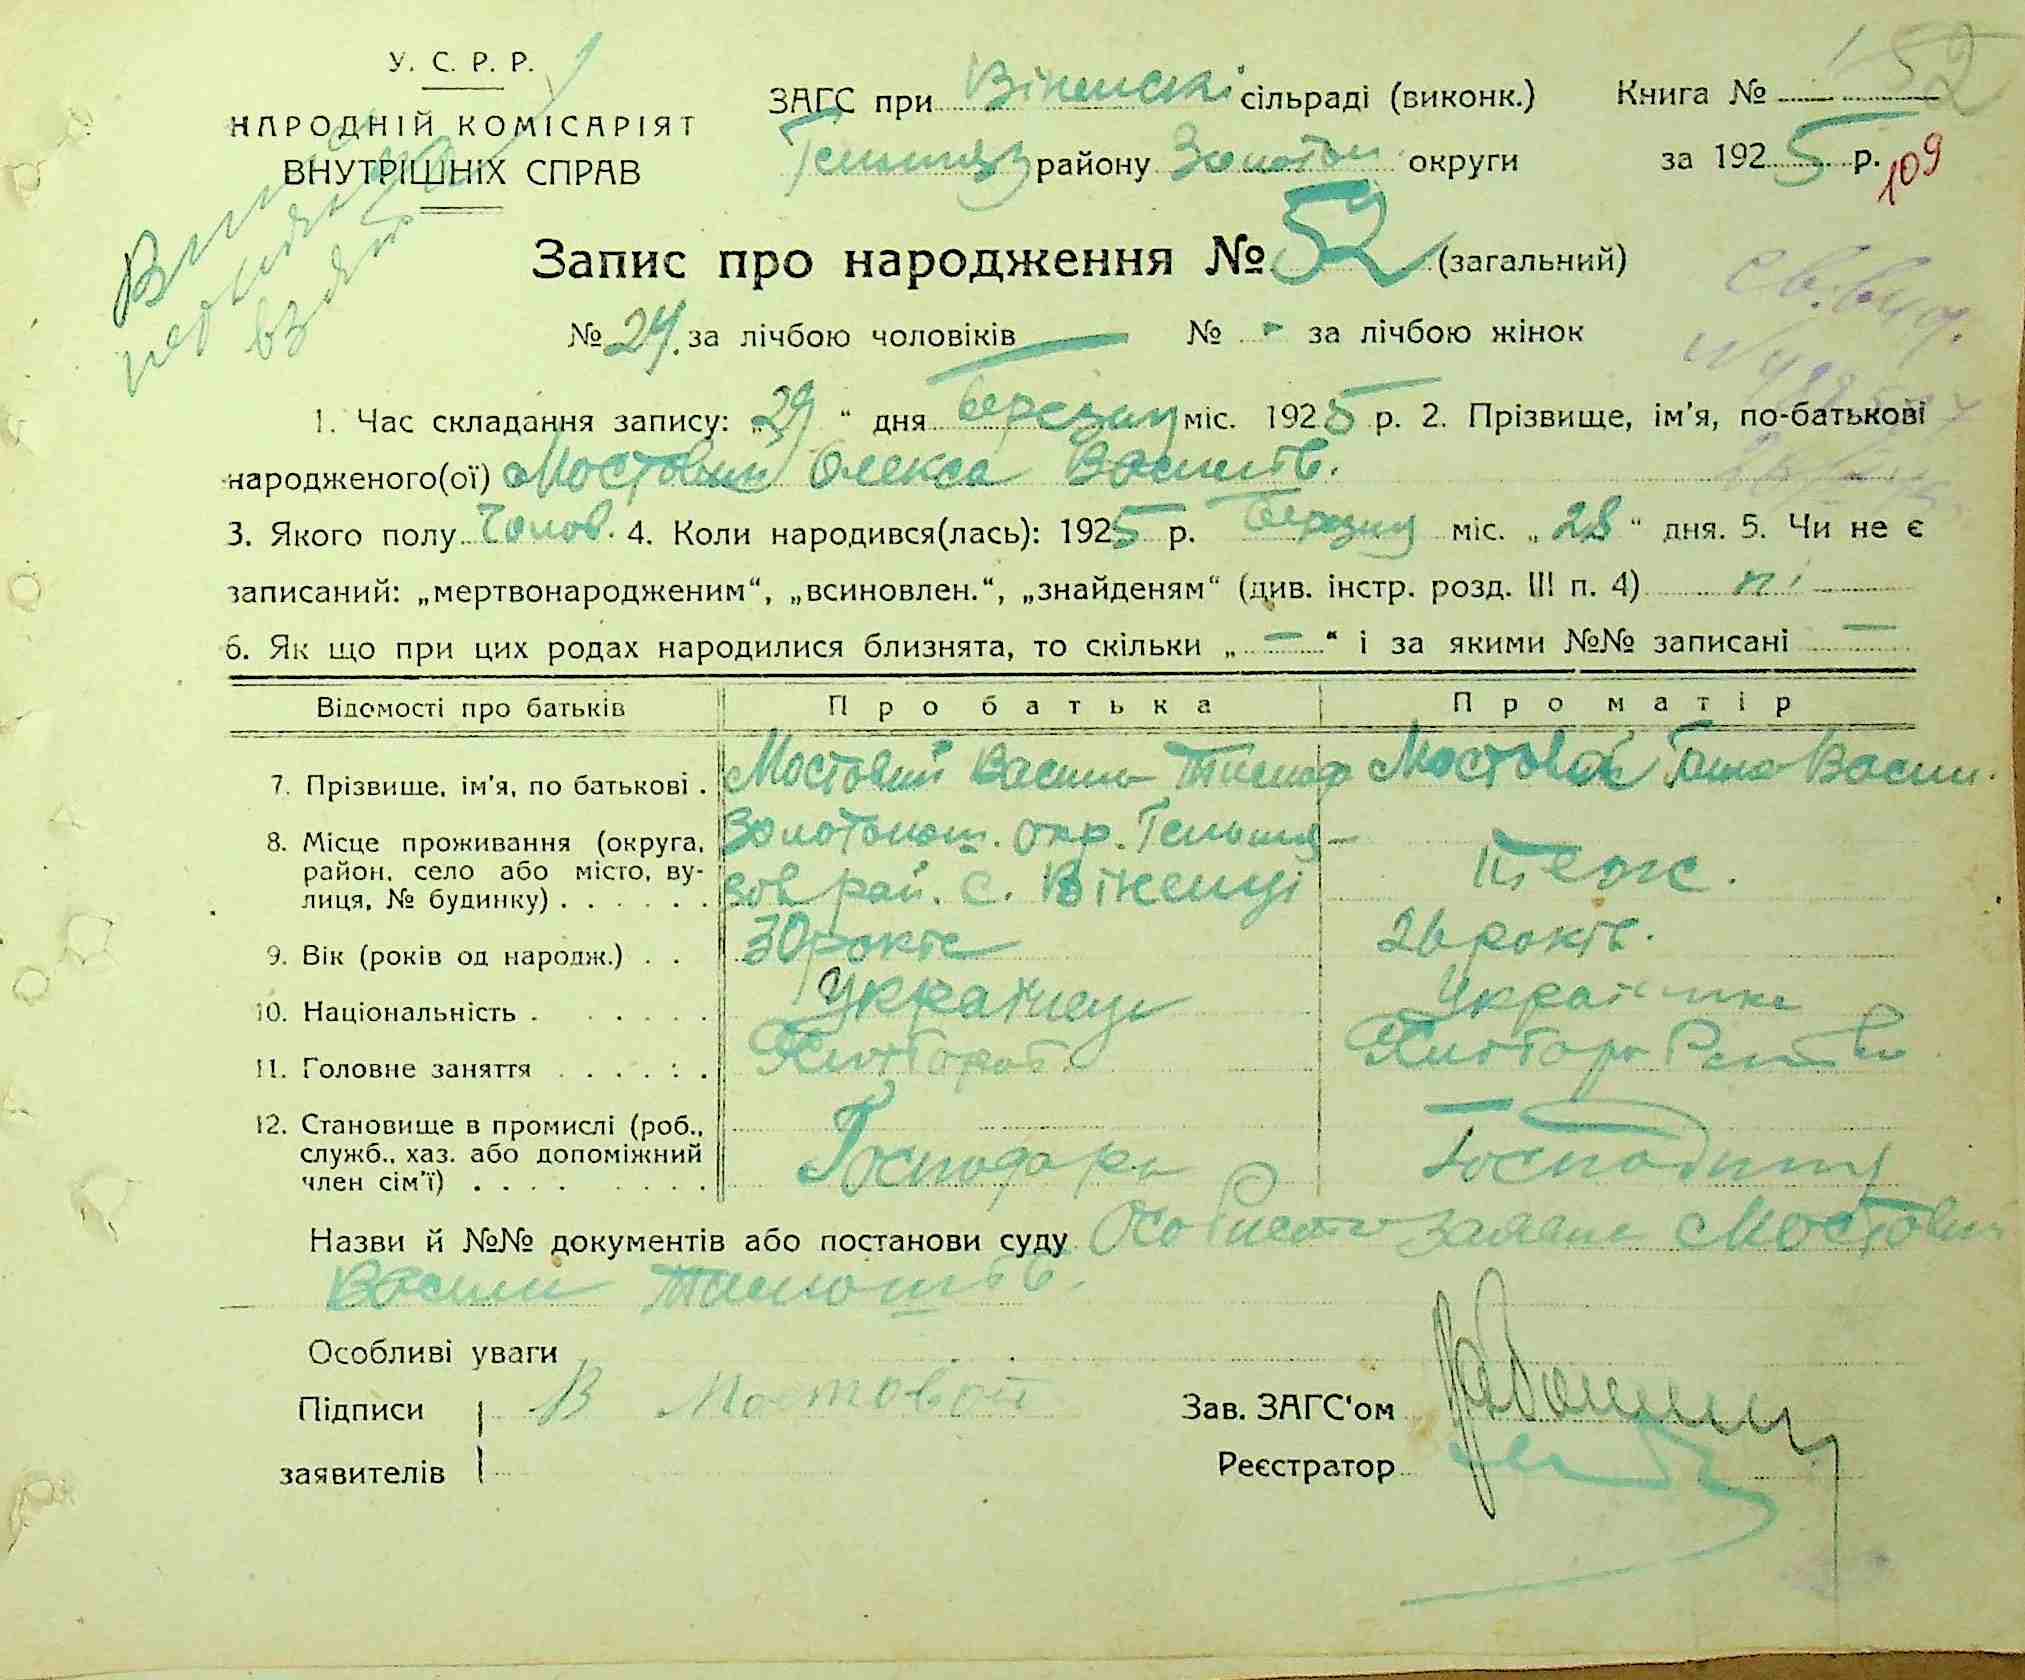 У. С. Р. Р.
НАРОДНІЙ КОМІСАРІЯТ
ВНУТРІШНІХ СПРАВ
ЗАГС при Віненскі сільраді (виконк.)
Гельмяз району Золотон округи
Книга № 1 52
за 1925 р. 109
Запис про народження № 52 (загальний)
№ 24. за лічбою чоловіків № - за лічбою жінок
1. Час складання запису: „29“ дня березня міс. 1925 р. 2. Прізвище, ім'я, по-батькові
народженого(ої) Мостовий Олекса Васильов.
3. Якого полу Чолов. 4. Коли народився(лась): 1925 р. березня міс. „28“ дня. 5. Чи не є
записаний: „мертвонародженим“, „всиновлен.“, „знайденям“ (див. інстр. розд. III п. 4) ні
6. Як що при цих родах народилися близнята, то скільки „—“ і за якими №№ записані —
Відомості про батьків Про батька Про матір
7. Прізвище, ім'я, по батькові . Мостовий Василь Тимоф Мостова Ганна Васил.
8. Місце проживання (округа, Золотонош. окр. Гельмя-
район, село або місто, ву- зов рай. с. Віненці Теж.
лиця, № будинку) . . . . . .
9. Вік (років од народж.) . . 30 років 26 років.
10. Національність . . . . . . Українець Українка
11. Головне заняття . . . . . . Хлібороб
12. Становище в промислі (роб.,
служб., хаз. або допоміжний Господарь Господиня
член сім'ї) . . . . . . . .
Назви й №№ документів або постанови суду Особиста заява Мостовий
Василь
Особливі уваги
Підписи В Мостовой Зав. ЗАГС'ом
заявителів Реєстратор